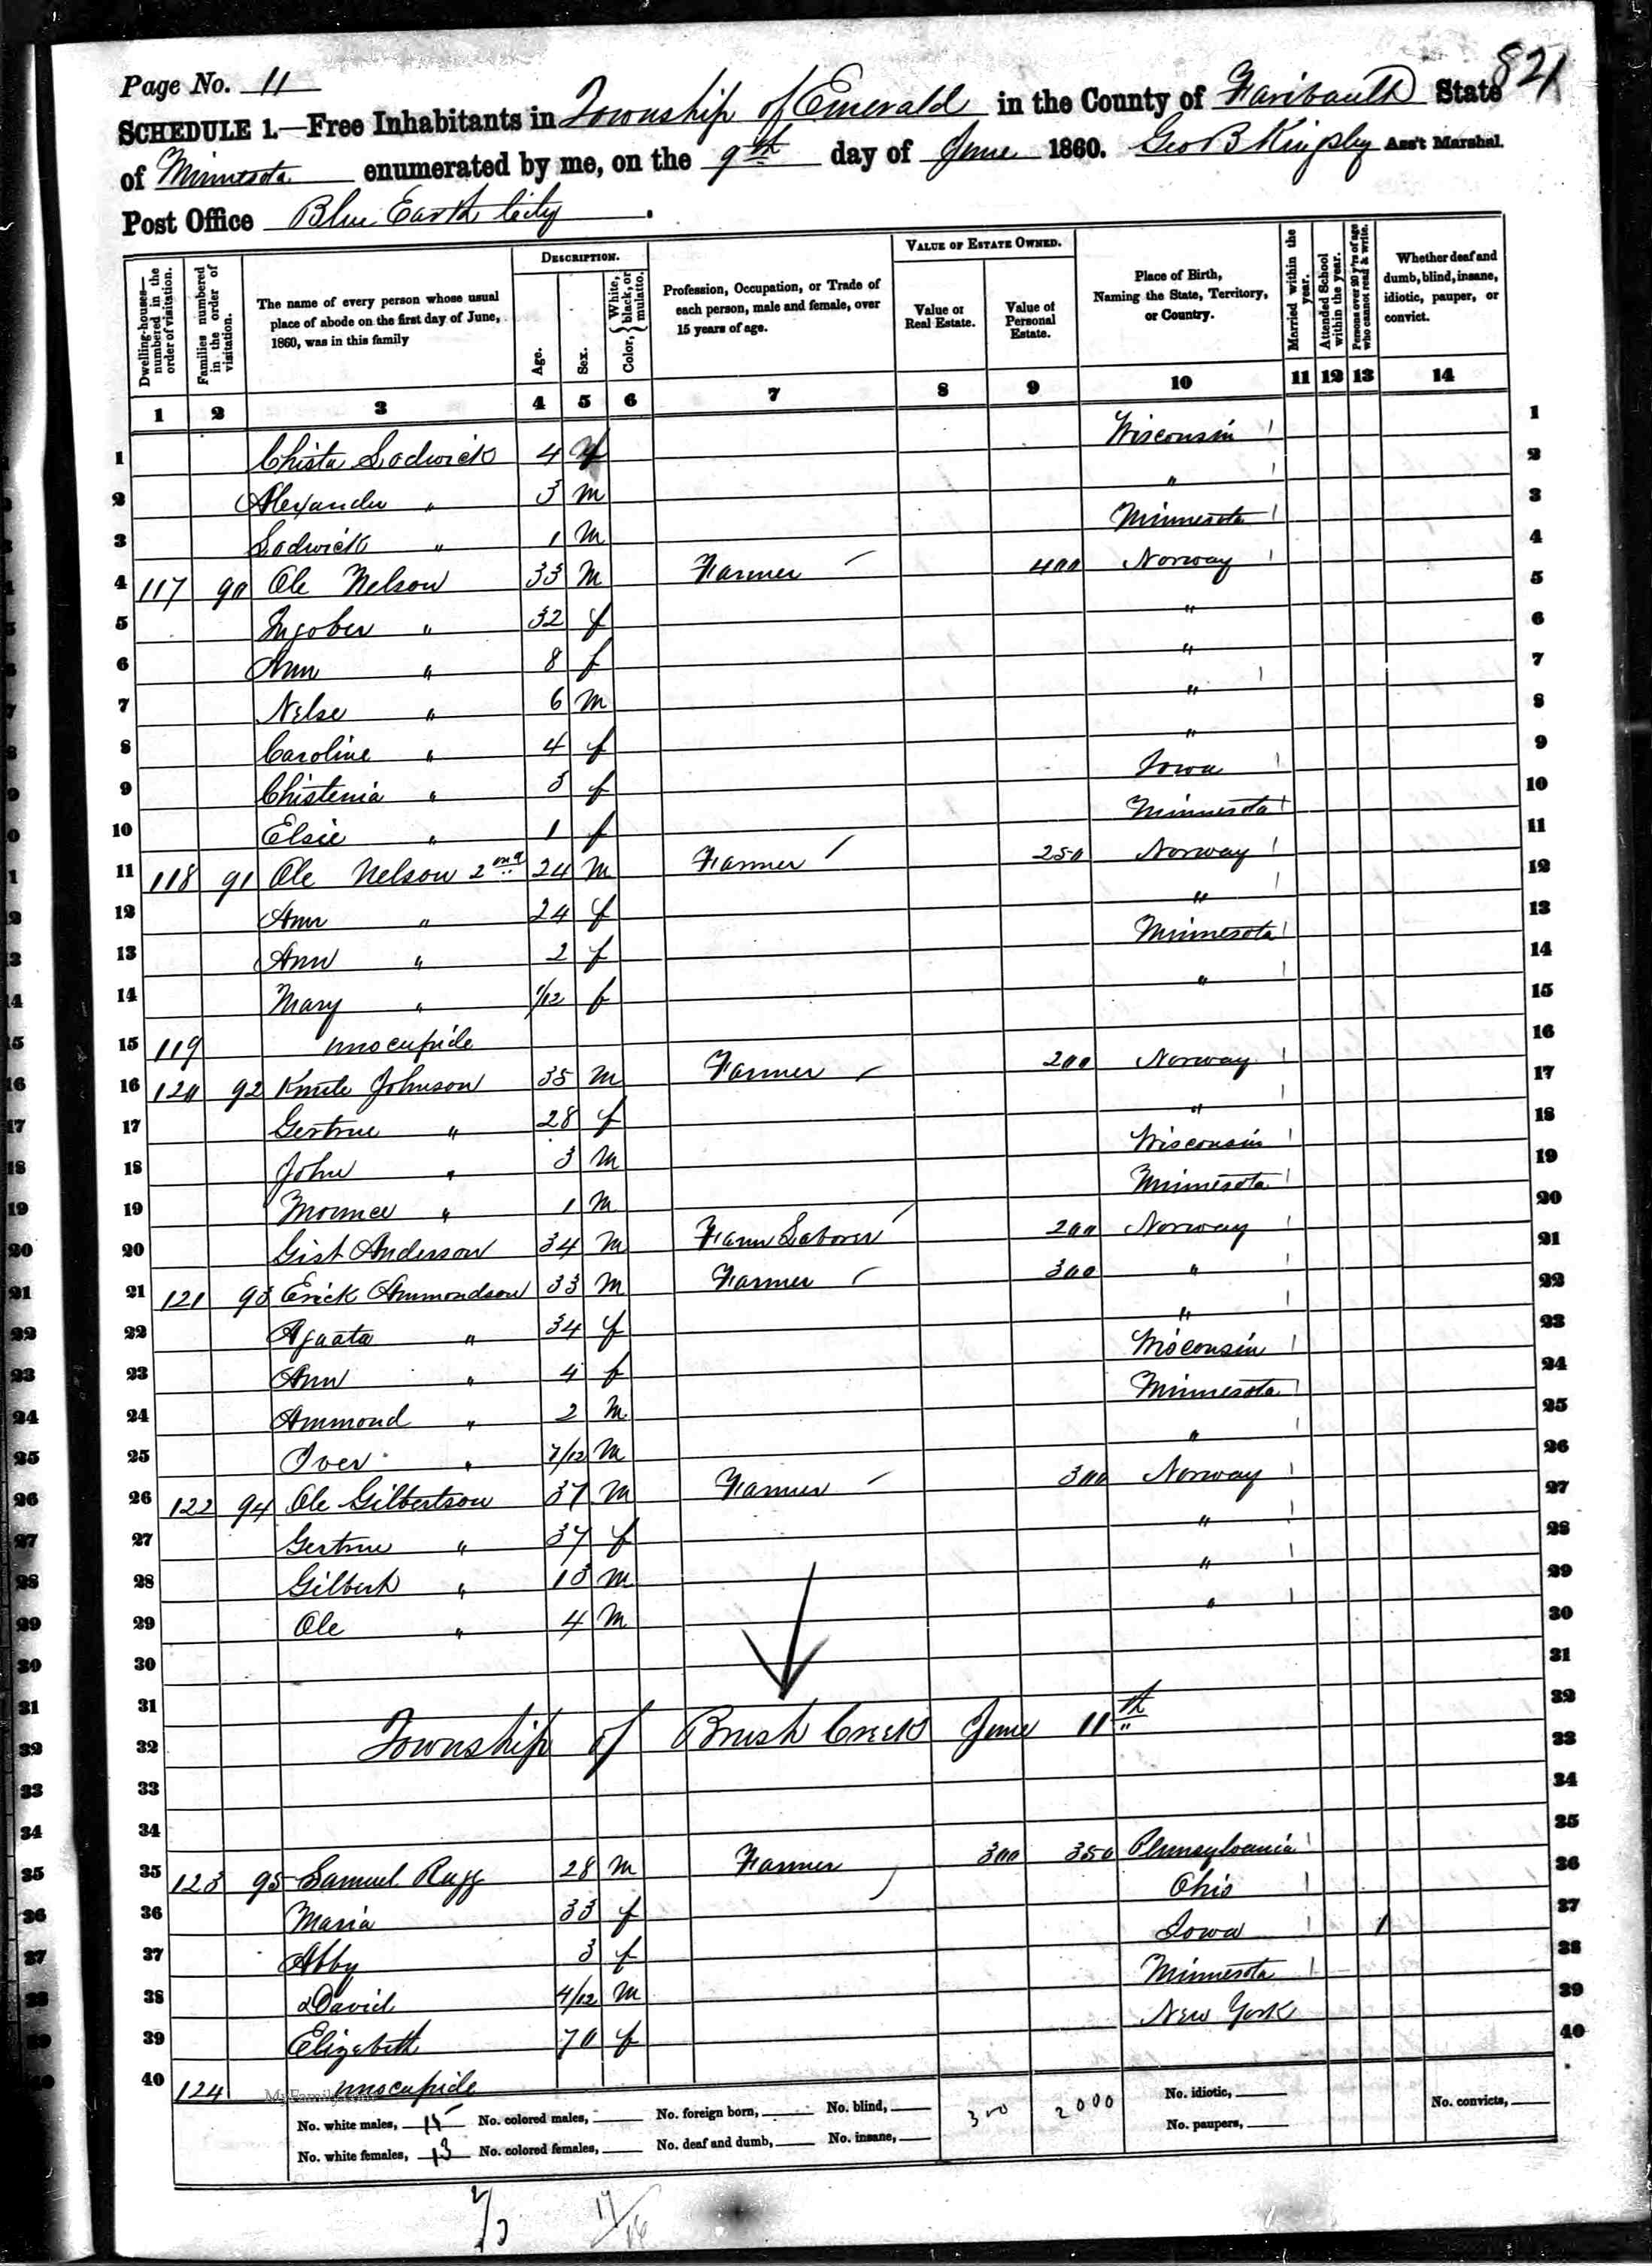 821
Page No. 11
SCHEDULE 1.—Free Inhabitants in Township of Emerald in the County of Faribault State
of Minnesota enumerated by me, on the 9th day of June 1860. Geo B Kingsley Ass't Marshal.
Post Office Blue Earth City.
Dwelling-houses—numbered in the order of visitation.
Families numbered in the order of visitation.
The name of every person whose usual place of abode on the first day of June, 1860, was in this family
DESCRIPTION.
Age.
Sex.
Color, { White, black, or mulatto.
Profession, Occupation, or Trade of each person, male and female, over 15 years of age.
VALUE OF ESTATE OWNED.
Value of Real Estate.
Value of Personal Estate.
Place of Birth, Naming the State, Territory, or Country.
Married within the year.
Attended School within the year.
Persons over 20 y'rs of age who cannot read & write.
Whether deaf and dumb, blind, insane, idiotic, pauper, or convict.
1 2 3 4 5 6 7 8 9 10 11 12 13 14
1 Chista Lodwick 4 f Wisconsin 1
2 Alexander " 3 m " 2
3 Lodwick " 1 m Minnesota 3
4 117 90 Ole Nelson 33 m Farmer 400 Norway 4
5 Ingober " 32 f " 5
6 Ann " 8 f " 6
7 Nelse " 6 m " 7
8 Caroline " 4 f " 8
9 Chistenia " 3 f Iowa 9
10 Elsie " 1 f Minnesota 10
11 118 91 Ole Nelson 2nd 24 m Farmer 250 Norway 11
12 Ann " 24 f " 12
13 Ann " 2 f Minnesota 13
14 Mary " 1/12 f " 14
15 119 unocupide 15
16 120 92 Knute Johnson 35 m Farmer 200 Norway 16
17 Gertrue " 28 f " 17
18 John " 3 m Wisconsin 18
19 " 1 m Minnesota 19
20 Gist Anderson 34 m Farm Laborer 200 Norway 20
21 121 93 Erick Ammondson 33 m Farmer 300 " 21
22 Agaata " 34 f " 22
23 Ann " 4 f Wisconsin 23
24 Ammond " 2 m Minnesota 24
25 Iver " 7/12 m " 25
26 122 94 Ole Gilbertson 37 m Farmer 300 Norway 26
27 Gertrue " 37 f " 27
28 Gilbert " 13 m " 28
29 Ole " 4 m " 29
30 30
31 31
32 Township of Brush Creek June 11th 32
33 33
34 34
35 123 95 Samuel Ruff 28 m Farmer 300 350 Pennsylvania 35
36 Maria 33 f Ohio 36
37 Abby 3 f Iowa 1 37
38 David 4/12 m Minnesota 38
39 Elizabeth 70 f New York 39
40 124 unocupide 40
MyFamily.com
No. white males, 15 No. colored males, No. foreign born, No. blind, 300 2000 No. idiotic, No. convicts,
No. white females, 13 No. colored females, No. deaf and dumb, No. insane, No. paupers,